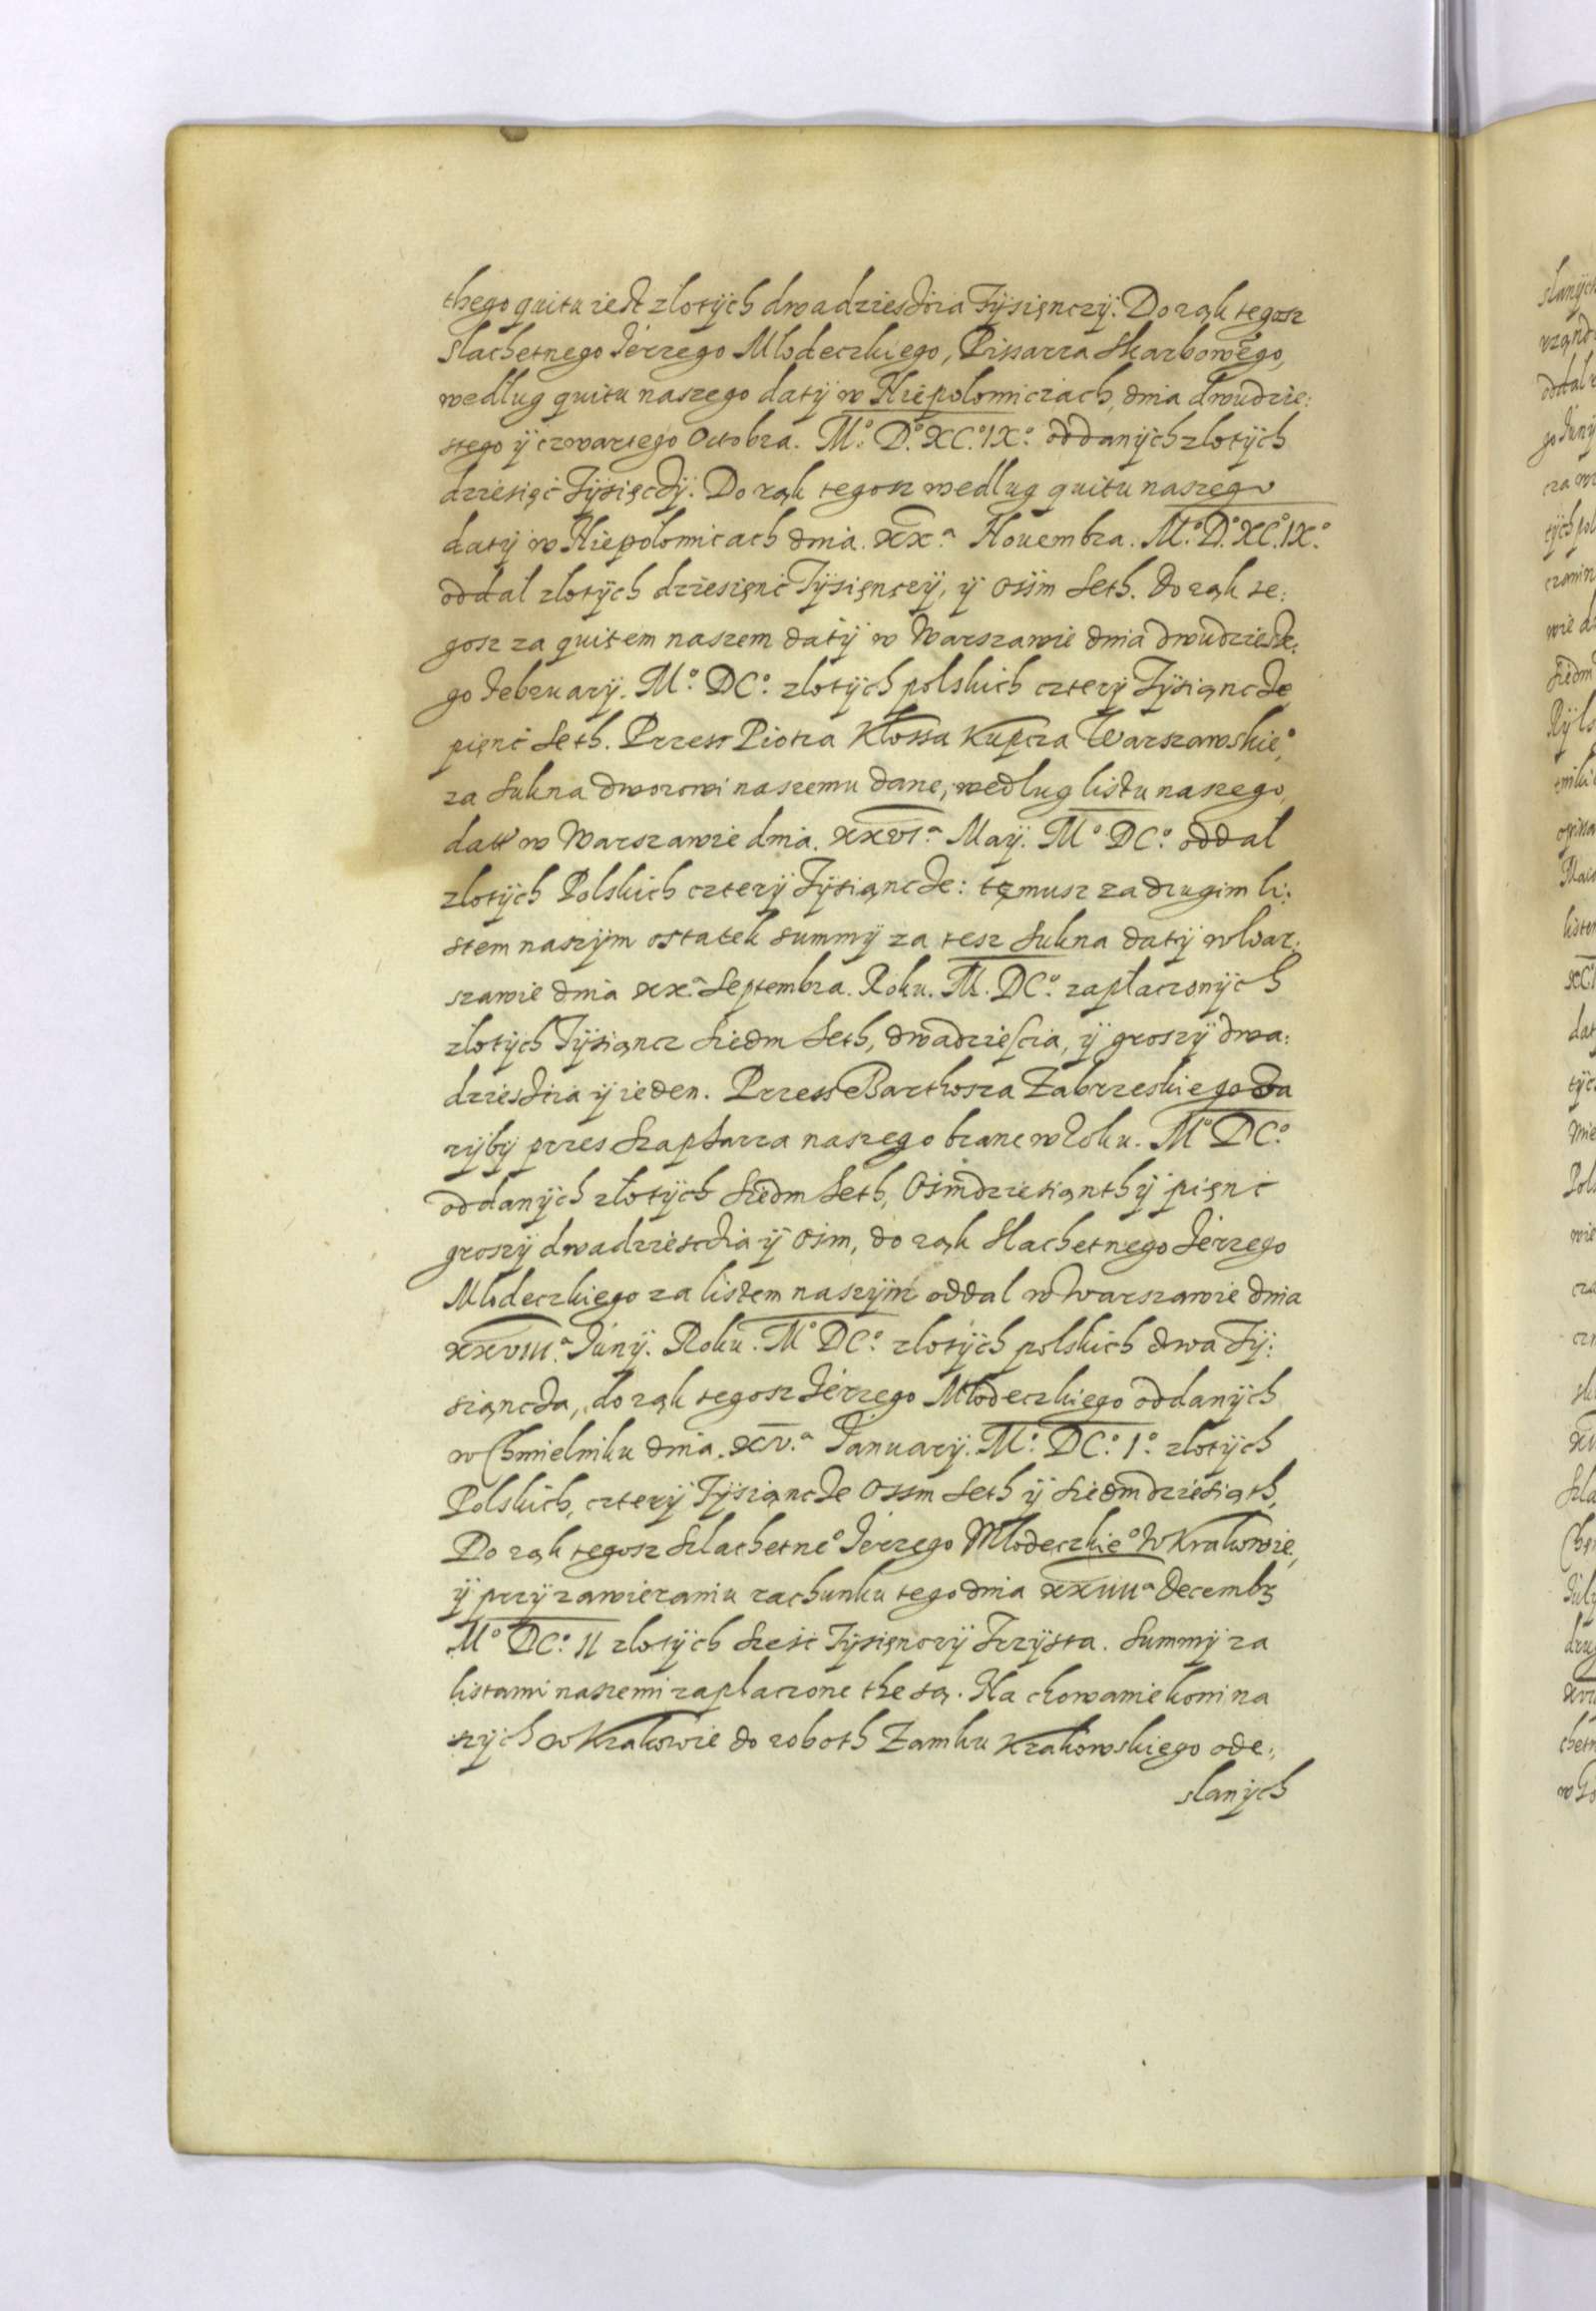 thego quitu iest zlotÿch dwadziesćia Tÿsięnczÿ. Do rąk tegosz
slachetnego Jerzego Mlodeczkiego, Pissarza Skarbowego,
wedlug quitu naszego datÿ w Niepolomiczach, dnia dwudzie:
stego ÿ czwartego Octobra. Mº. Dº. XC.º IX.º oddanÿch zlotÿch
dziesięć Tÿsięcÿ. Do rąk tegosz wedlug quitu naszego
datÿ w Niepolomicach dnia. xx.ª Nouembra. Mº. Dº. XCº. IX.º
oddal zlotÿch dziesięnć Tÿsięncÿ, ÿ osim Seth. Do rąk te:
gosz za quitem naszem datÿ w Warszawie dnia dwudzieste:
go Februarÿ. Mº. DCº. zlotÿch polskich czterÿ Tÿsiącze
pięnć Seth. Przess Piotra Klossa Kupcza Warszawskieº,
za Sukna dworowi naszemu dane, wedlug listu naszego,
datt w Warszawie dnia. xxvi.ª Maÿ. Mº. DCº. oddal
zlotÿch Polskich czterÿ Tÿsiącze: temusz za drugim li:
stem naszÿm ostatek summÿ za tesz Sukna datÿ w War:
szawie dnia xx.ª Septembra. Roku. M. DCº. zaplaczonÿch
zlotÿch Tÿsiąncz Siedm Seth, dwadzieścia, ÿ groszÿ dwa:
dziesćia ÿ ieden. Przess Barthosza Zabrzeskiego za
rÿbÿ przes Szaffarza naszego brane w Roku. Mº DCº
oddanÿch zlotÿch Siedm Seth, Osimdziesiąnth ÿ pięnć
groszÿ dwadziescia ÿ osim, do rąk Slachetnego Jerzego
Mlodeczkiego za listem naszÿm oddal w Warszawie dnia
xxviii.ª Junÿ. Roku. Mº DCº. zlotÿch polskich dwa Tÿ:
siąncza, do rąk tegosz Jerzego Mlodeczkiego oddanÿch
w Chmielniku dnia. xv.ª Januarÿ. Mº. DCº. Iº. zlotÿch
Polskich, czterÿ Tÿsiącze ossm Seth ÿ Siedmdziesiąth,
Do rąk tegosz Szlachetneº Jerzego Mlodeczkieº w Krakowie,
ÿ przÿ zawieraniu rachunku tego dnia xxiiiiª Decembr
Mº DCº. II zlotÿch Sześć Tÿsięnczÿ Trzÿsta. Summÿ za
listami naszemi zaplaczone the są. Na chowanie koni na
szÿch w Krakowie do roboth Zamku Krakowskiego ode:
slanÿch